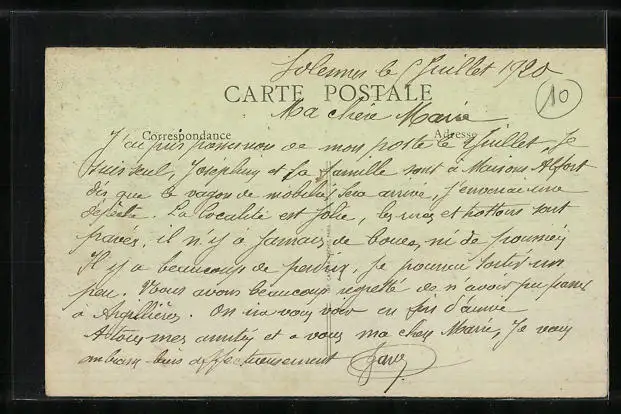 Solesmes le 5 Juillet 1920
10
CARTE POSTALE
Ma chère Marie
Correspondance
Adresse
J'ai pris possession de mon poste le Juillet. Je
suis seul, Josephine et sa famille sont à Maisons Alfort
dès que le wagon de mobilier sera arrivé, j'enverrai une
La localité est jolie, les rues et trottoirs sont
pavés, il n'y a jamais de boue, ni de poussière
Il y a beaucoup de perdrix, je pourrai sortir un
peu. Nous avons beaucoup regretté de n'avoir pu passer
à Argillières. On ira vous voir en fin d'année
A tous mes amitiés et a vous ma chère Marie, Je vous
embrasse bien affectueusement